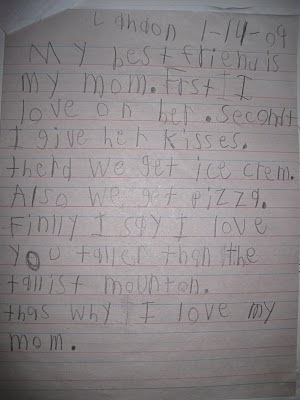 Landon 1-14-09
My best friend is
my mom. Frst I
love on her. Second
I give her kisses.
therd we get ice crem.
Also we get pizza.
Finlly I say I love
you taller than the
tallist mounton.
thas why I love my
mom.